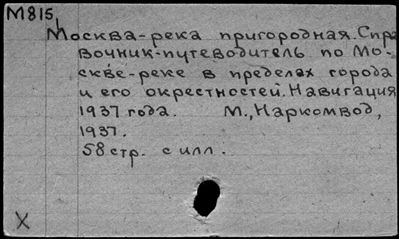 М815,
Москва-река пригородная. Спра
вочник-путеводитель по Мо-
скве-реке в пределах города
и его окрестностей. Навигация
1937 года. М., Наркомвод,
1937.
58 стр. с илл.
X